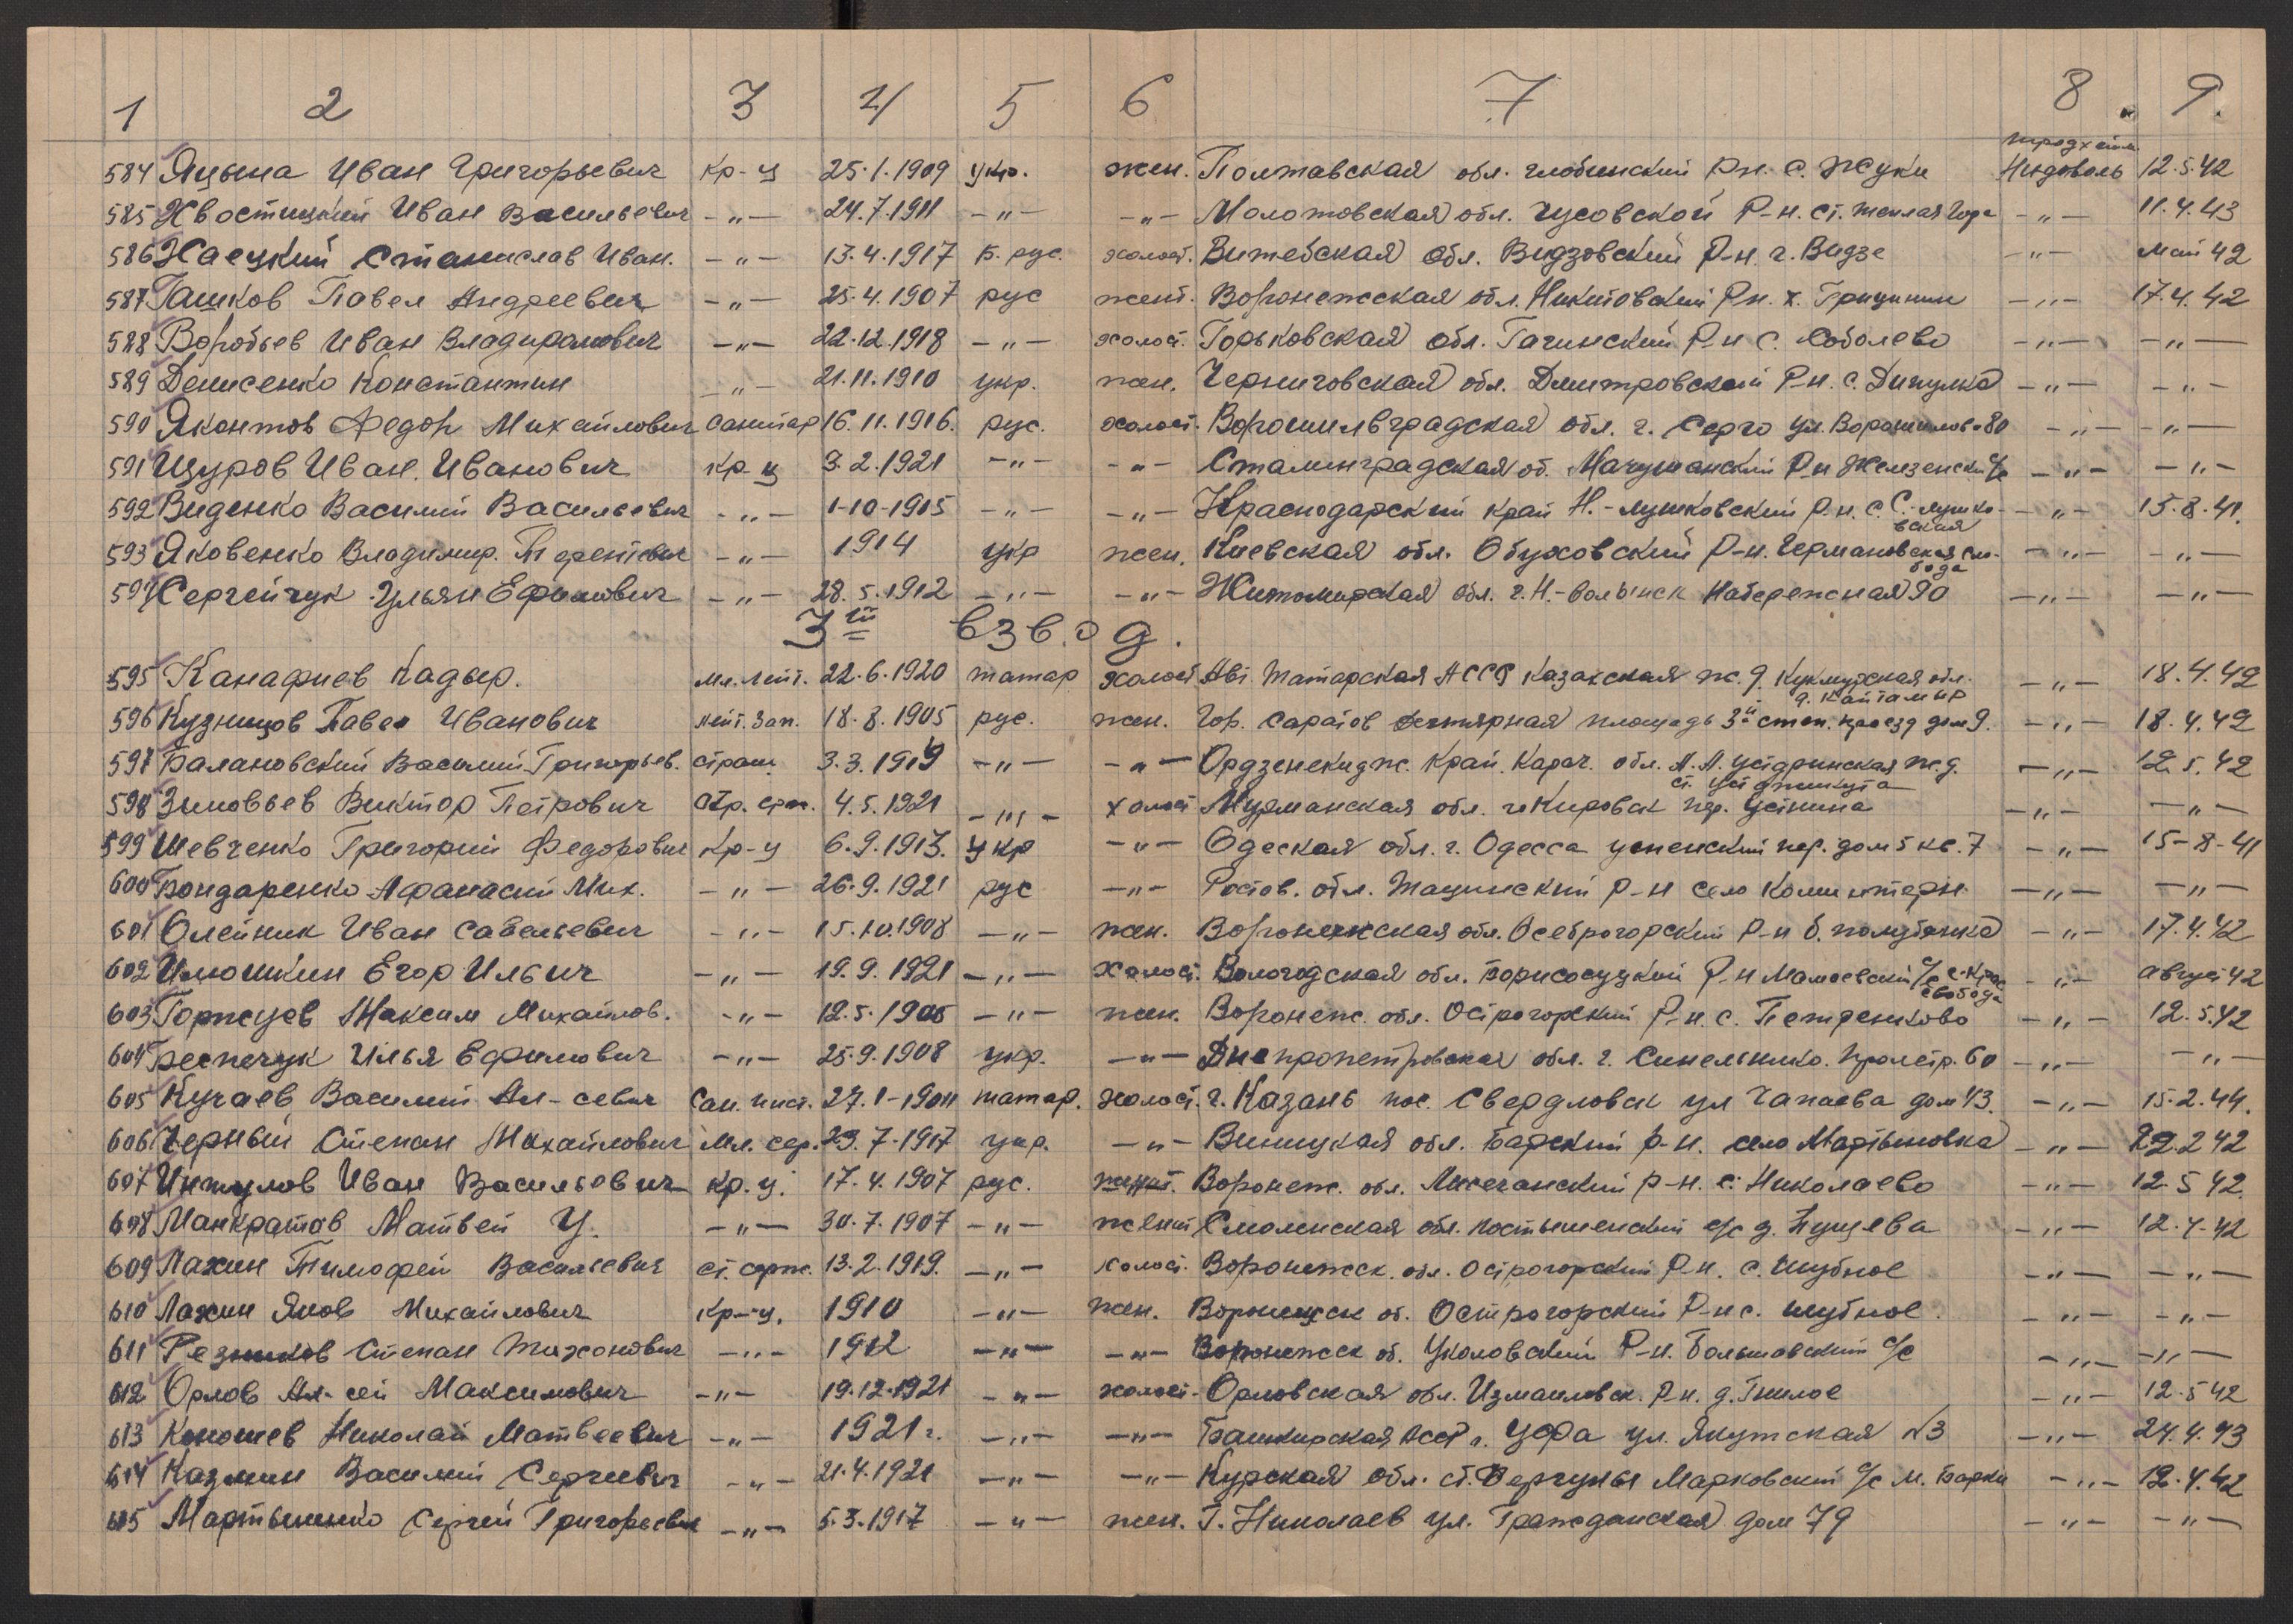 1 2 3 4 5 6 7 8 9.
584 Яцына Иван Григорьевич кр-ц 25.1.1909 укр. жен. Полтавская обл. глобинский р-н. с. Жуки 12.5.42
585 Хвостицкий Иван Васильевич -"- 24.7.1911 -"- -"- Молотовская обл. Чусовской Р-н. ст. теплая Гора -"- 11.4.43
586 Хаецкий Станислав Иван. -"- 13.4.1917 б. рус. холост. Витебская обл. Видзовский Р-н. г. Видзе -"- май 42
587 Гашков Павел Андреевич -"- 25.4.1907 рус женат. Воронежская обл. Никитовский Р-н. х. -"- 17.4.42
588 Воробьев Иван -"- 22.12.1918 -"- холост. Горьковская обл. Гагинский Р-н с. Соболево -"- -"-
589 Денисенко Константин -"- 21.11.1910 укр. жен. Черниговская обл. Дмитровский Р-н. с. -"- -"-
590 Яконтов Федор Михайлович санитар 16.11.1916. рус. холост. Ворошилвградская обл. г. Серго ул. Ворошилова 80 -"- -"-
591 Щуров Иван. Иванович кр-ц 3.2.1921 -"- -"- Сталинградская об. Р-н с/с -"- -"-
592 Виденко Василий Васильевич -"- 1-10-1915 -"- -"- Краснодарский край Н.-лушковский р-н. с. С.-лушко- -"- 15.8.41.
вская
593 Яковенко Владимир. Терентевич -"- 1914 укр жен. Киевская обл. Обуховский Р-н. Германовская сло- -"- -"-
бода
594 Сергейчук Ульян Ефимович -"- 28.5.1912 -"- -"- Житомирская обл. г. Н.-волынск Набережная 90 -"- -"-
3й взвод.
595 Канафиев Кадыр. мл. лейт. 22.6.1920 татар холост Татарская АССР Казахская ж.д. Кукмурская обл. -"- 18.4.42
д. Кайтамыр
596 Кузницов Павел Иванович лейт. зап. 18.8.1905 рус. жен. Гор. Саратов площадь 3й проезд дом 9. -"- 18.4.42
597 Балановский Василий Григорьев. старш. 3.3.1919 -"- -"- Ордженекидж. Край. Карач. обл. ж.д. -"- 12.5.42
ст.
598 Зиновьев Виктор Петрович Стр. срж. 4.5.1921 -"- холост Мурманская обл. г. Кировск пер. Устинина -"- -"-
599 Шевченко Григорий Федорович Кр-ц 6.9.1913. укр -"- Одеская обл. г. Одесса успенский пер. дом 5 кв. 7 -"- 15-8-41
600 Бондаренко Афанасий Мих. -"- 26.9.1921 рус -"- Ростов. обл. Тацинский р-н село Коминтерн. -"- -"-
601 Олейник Иван Савельевич -"- 15.10.1908 -"- жен. Воронежская обл. Р-н б. полубянка -"- 17.4.42
602 Илюшкин Егор Ильич -"- 19.9.1921 -"- холост. Вологодская обл. Борисосудкий Р-н с/с с. Крас -"- август 42
свобода
603 Горжцев Максим Михайлов. -"- 12.5.1905 -"- жен. Воронеж. обл. Острогорский Р-н. с. Петренково -"- 12.5.42
604 Беспечук Илья Ефимович -"- 25.9.1908 укр. -"- Днепропетровская обл. г. Синельнико. Пролетр. 60 -"- -"-
605 Кучаев Василий Ал-севич Сан. инст. 27.1-1911 татар. холост. г. Казань пос. Свердловск ул Чапаева дом 43. -"- 15.2.44.
606 Черный Степан Михайлович Мл. сер. 23.7-1917 укр. -"- Виницкая обл. Барский р-н. село Мартыновка -"- 22.2 42
607 Иван Васильевич кр.ц. 17.4.1907 рус. женат. Воронеж. обл. р-н. с. Николаево -"- 12.5 42.
608 Манкратов Матвей У. -"- 30.7.1907 -"- женат Смоленская обл. с/с д. -"- 12.4.42
609 Лахин Тимофей Васильевич ст. серж. 13.2.1919. -"- холост. Воронежск. обл. Острогорский Р-н. с. Шубное -"- -"-
610 Лахин Яков Михайлович Кр-ц. 1910 -"- жен. об. Острогорский Р-н с. шубное. -"- -"-
611 Резников Степан Тихонович -"- 1912 -"- -"- Воронежск об. Уколовский Р-н. с/с -"- -"-
612 Орлов Ал-сей Максимович -"- 19.12.1921 -"- холост. Орловская обл. Измаиловск. Р-н. д. Гнилое -"- 12.5 42
613 Коношев Николай Матвеевич -"- 1921 г. -"- -"- Башкирская АССР г. Уфа ул. Якутская №3 -"- 24.4.43
614 Казмин Василий Сергиевич -"- 21.4.1921 -"- -"- Курская обл. ст. Марковский с/с м. Барки -"- 12.4.42
615 Мартыненко Сергей Григорьевич -"- 5.3.1917 -"- жен. Г. Николаев ул. Гражданская дом 79 -"- -"-